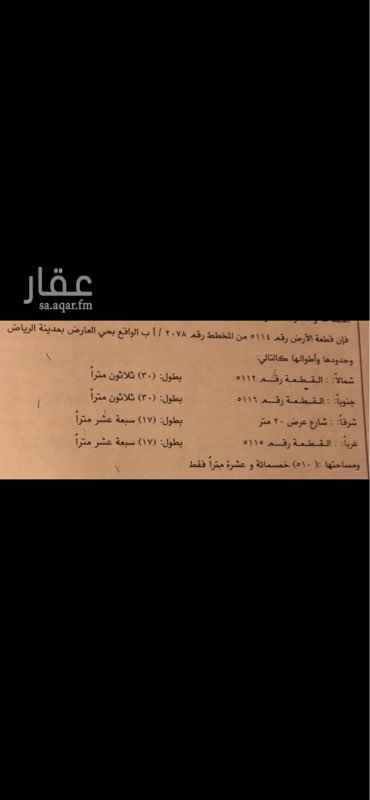 عقار
sa.aqar.fm
فإن قطعة الأرض رقم ٥١١٤ من المخطط رقم ٢٠٧٨ / أ ب الواقع بحي العارض بمدينة الرياض
وحدودها وأطوالها كالتالي:
شمالاً: : القطعة رقم ٥١١٢ بطول: (٣٠) ثلاثون متراً
جنوباً: : القطعة رقم ٥١١٦ بطول: (٣٠) ثلاثون متراً
شرقاً: : شارع عرض ٢٠ متر بطول: (١٧) سبعة عشر متراً
غرباً: : القطعة رقم ٥١١٥ بطول: (١٧) سبعة عشر متراً
ومساحتها :( ٥١٠) خمسمائة و عشرة متراً فقط